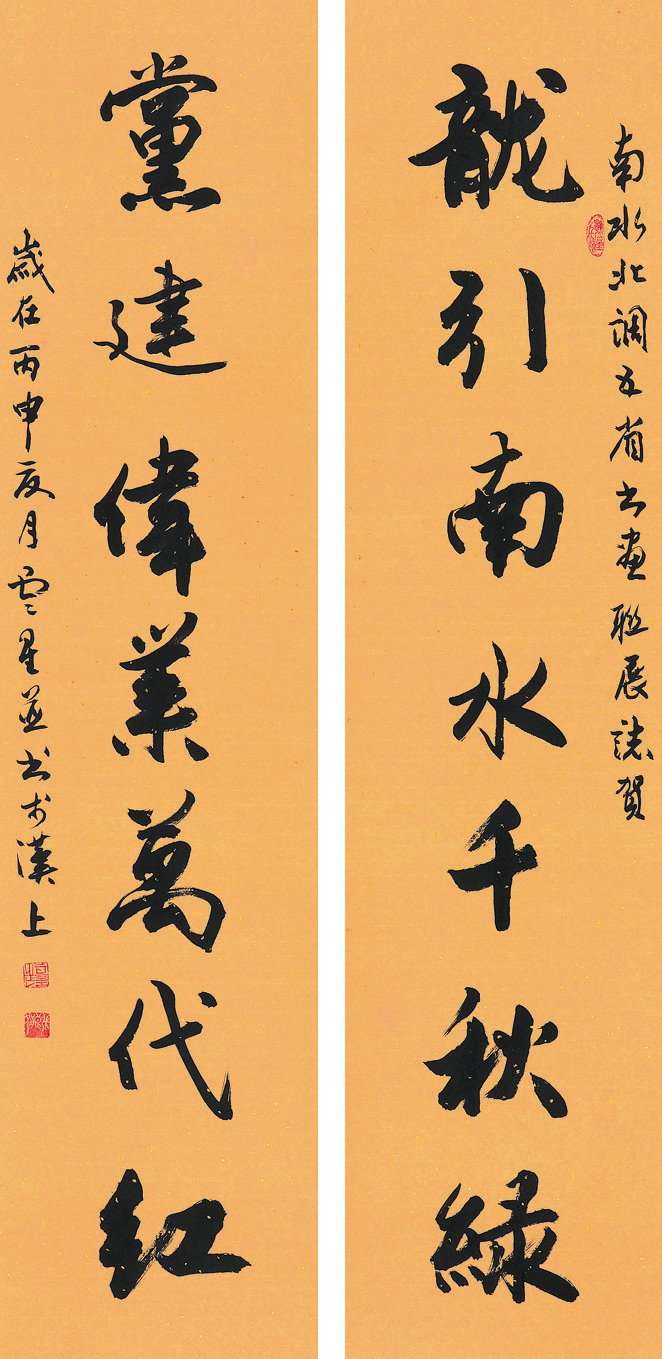 南水北调五省书画联展誌贺
龍引南水千秋緑
黨建偉業萬代红
歲在丙申夏月雲星並书於漢上